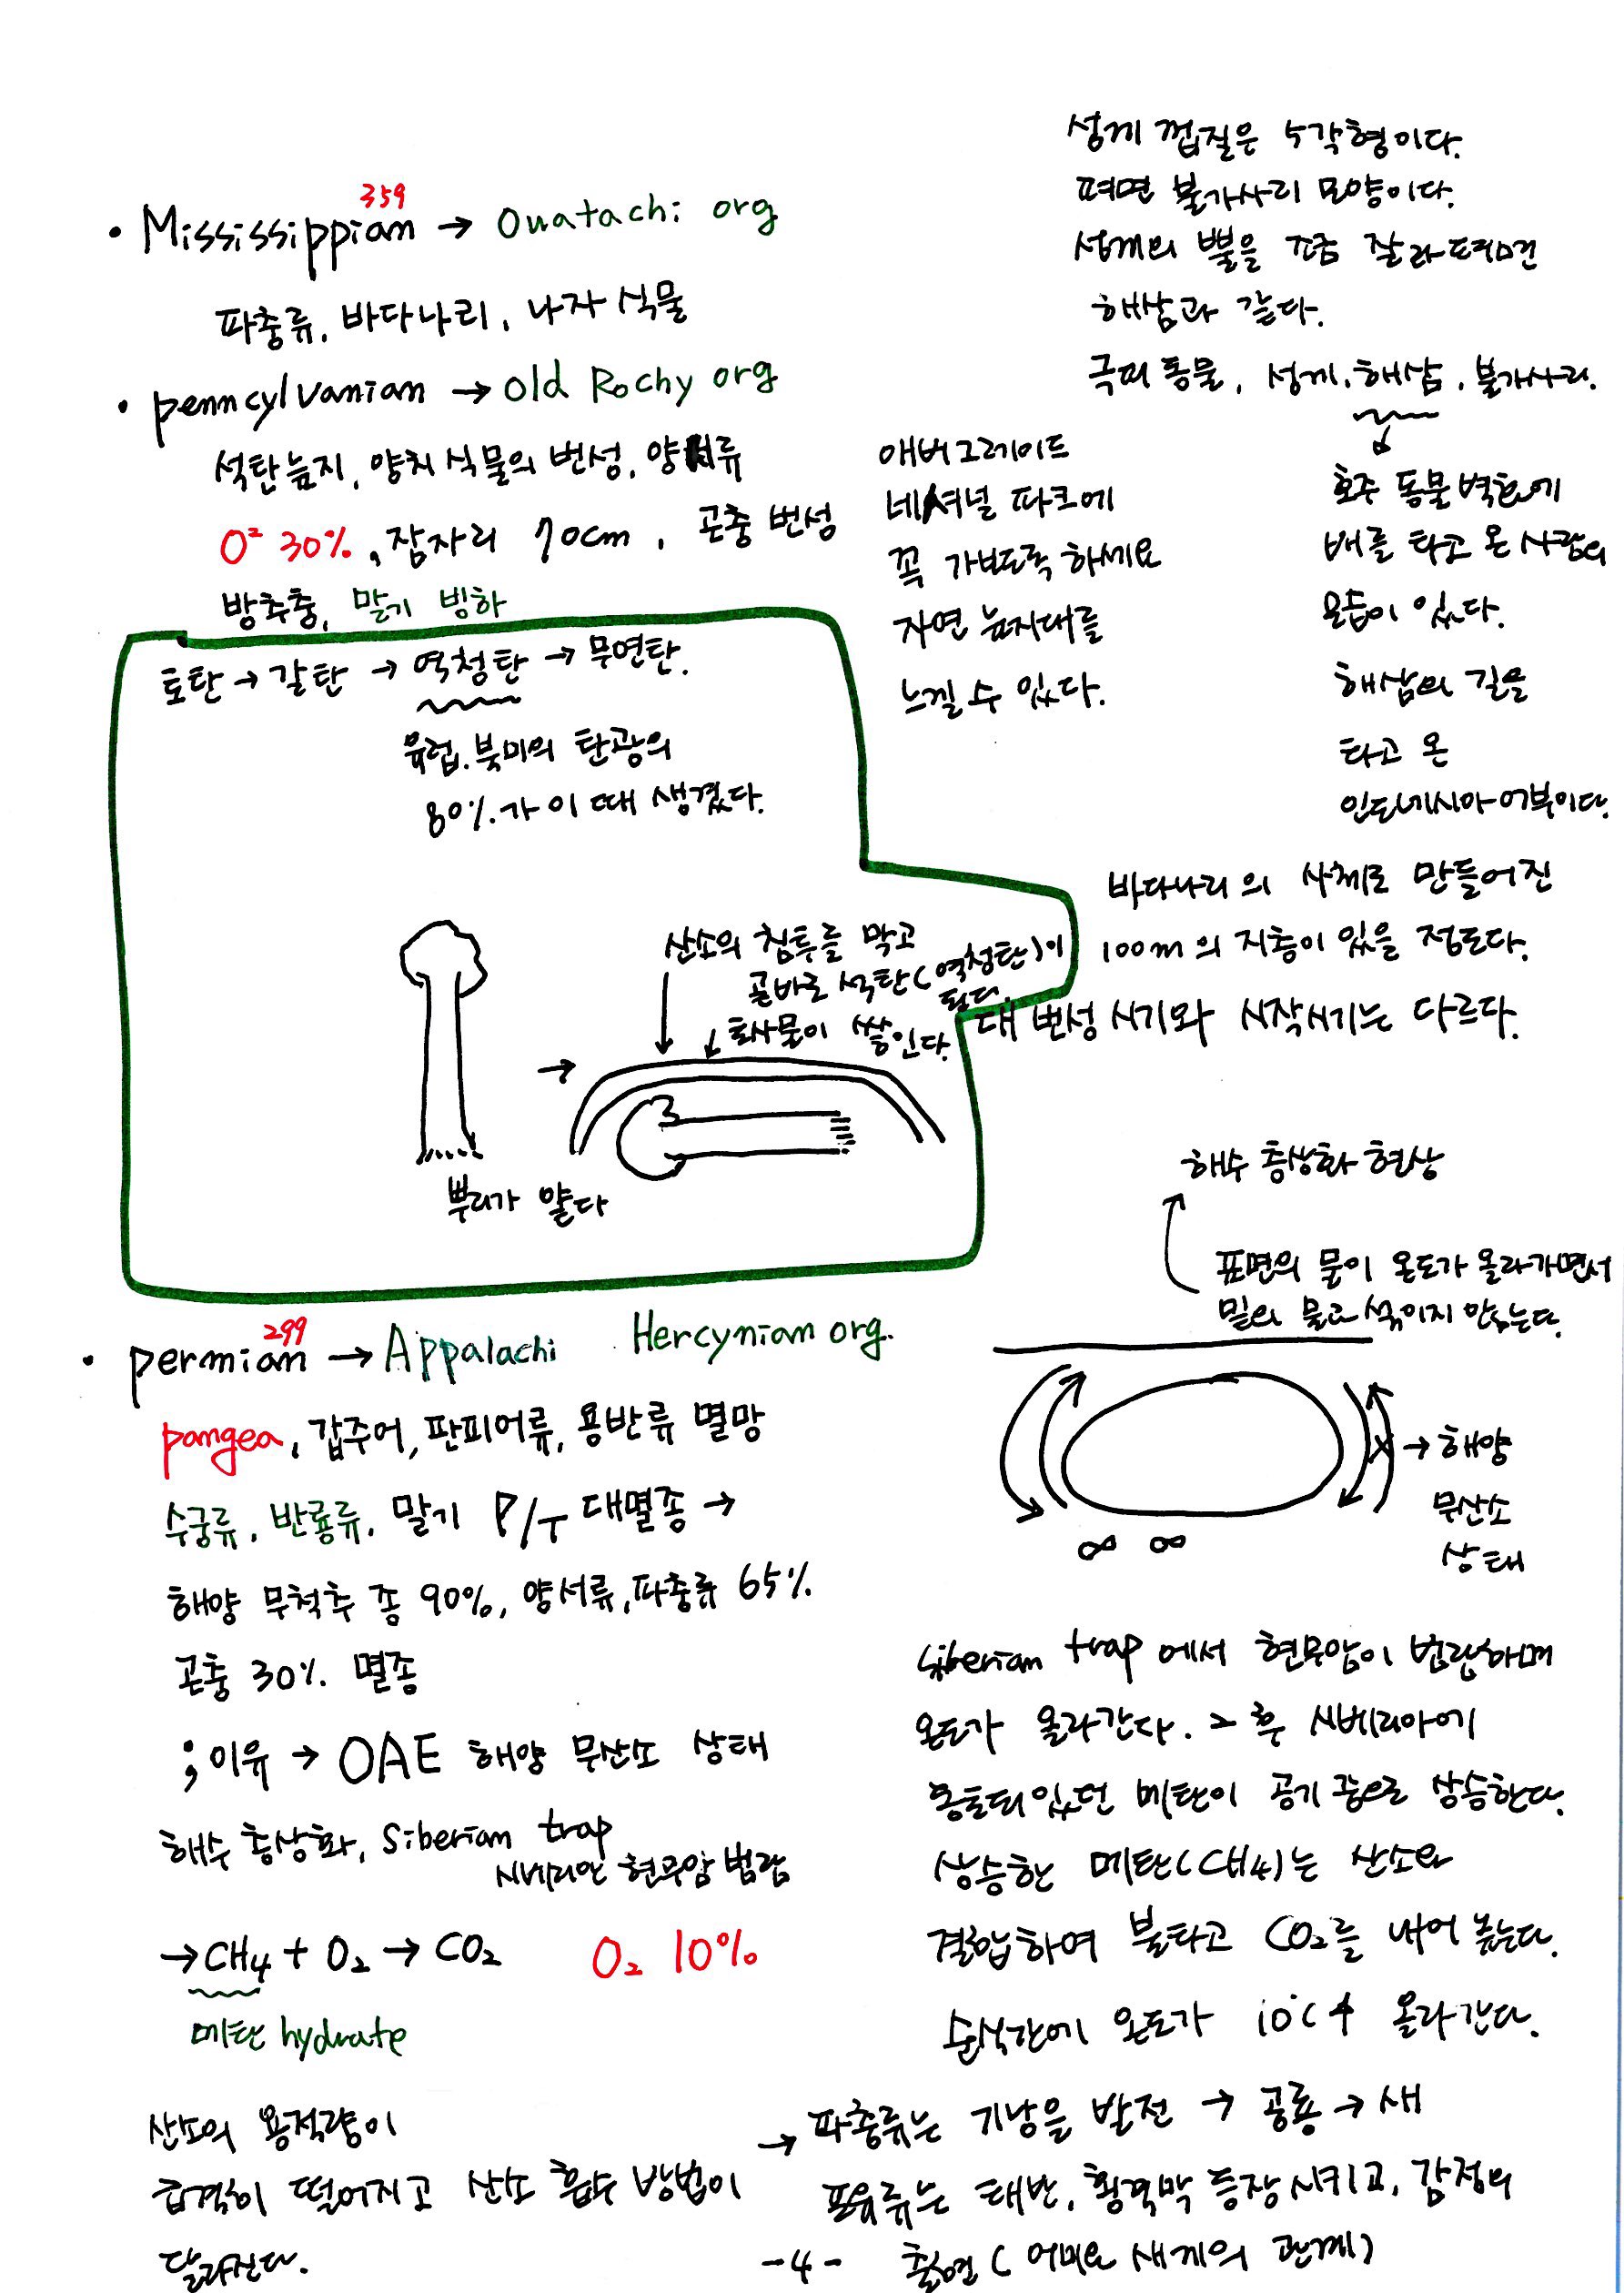 성게 껍질은 5각형이다.
펴면 불가사리 모양이다.
성게의 뿔을 조금 잘라 떼면
해삼과 같다.
극피동물, 성게, 해삼, 불가사리.
호주 동물 벽화에
배를 타고 온 사람의
모습이 있다.
해삼의 길을
타고 온
인도네시아 어부이다.
에버그레이트
네셔널 파크에
꼭 가보도록 하세요
자연 늪지대를
느낄 수 있다.
359
• Mississippian → Ouatachi org
파충류, 바다나리, 나자식물
• penncylvanian → old Rochy org
석탄늪지, 양치식물의 번성, 양서류
O² 30%, 잠자리 70cm, 곤충 번성
방추충, 말기 빙하
토탄 → 갈탄 → 역청탄 → 무연탄.
유럽. 북미의 탄광의
80%가 이 때 생겼다.
산소의 침투를 막고
곧바로 석탄(역청탄)이
된다.
퇴사물이 쌓인다.
뿌리가 얕다
바다나리의 사체로 만들어진
100m의 지층이 있을 정도다.
대 번성 시기와 시작시기는 다르다.
해수 층상화 현상
표면의 물이 온도가 올라가면서
밑의 물과 섞이지 않는다.
→ 해양
무산소
상태
299
• permian → Appalachi Hercynian org.
pangea, 갑주어, 판피어류, 용반류 멸망
수궁류, 반룡류, 말기 P/T 대멸종 →
해양 무척추 종 90%, 양서류, 파충류 65%
곤충 30% 멸종
; 이유 → OAE 해양 무산소 상태
해수 층상화, Siberian trap
시베리안 현무암 범람
→ CH₄ + O₂ → CO₂ O₂ 10%
메탄 hydrate
Siberian trap 에서 현무암이 범람하며
온도가 올라간다. 그 후 시베리아에
동토되있던 메탄이 공기 중으로 상승한다.
상승한 메탄(CH4)는 산소와
결합하여 불타고 CO₂를 내어 놓는다.
순식간에 온도가 10℃↑ 올라간다.
산소의 용적량이
급격히 떨어지고 산소 흡수 방법이
달라진다.
→ 파충류는 기낭을 발전 → 공룡 → 새
포유류는 태반, 횡격막 등장시키고, 감정의
출현 ( 어미와 새끼의 관계)
-4-